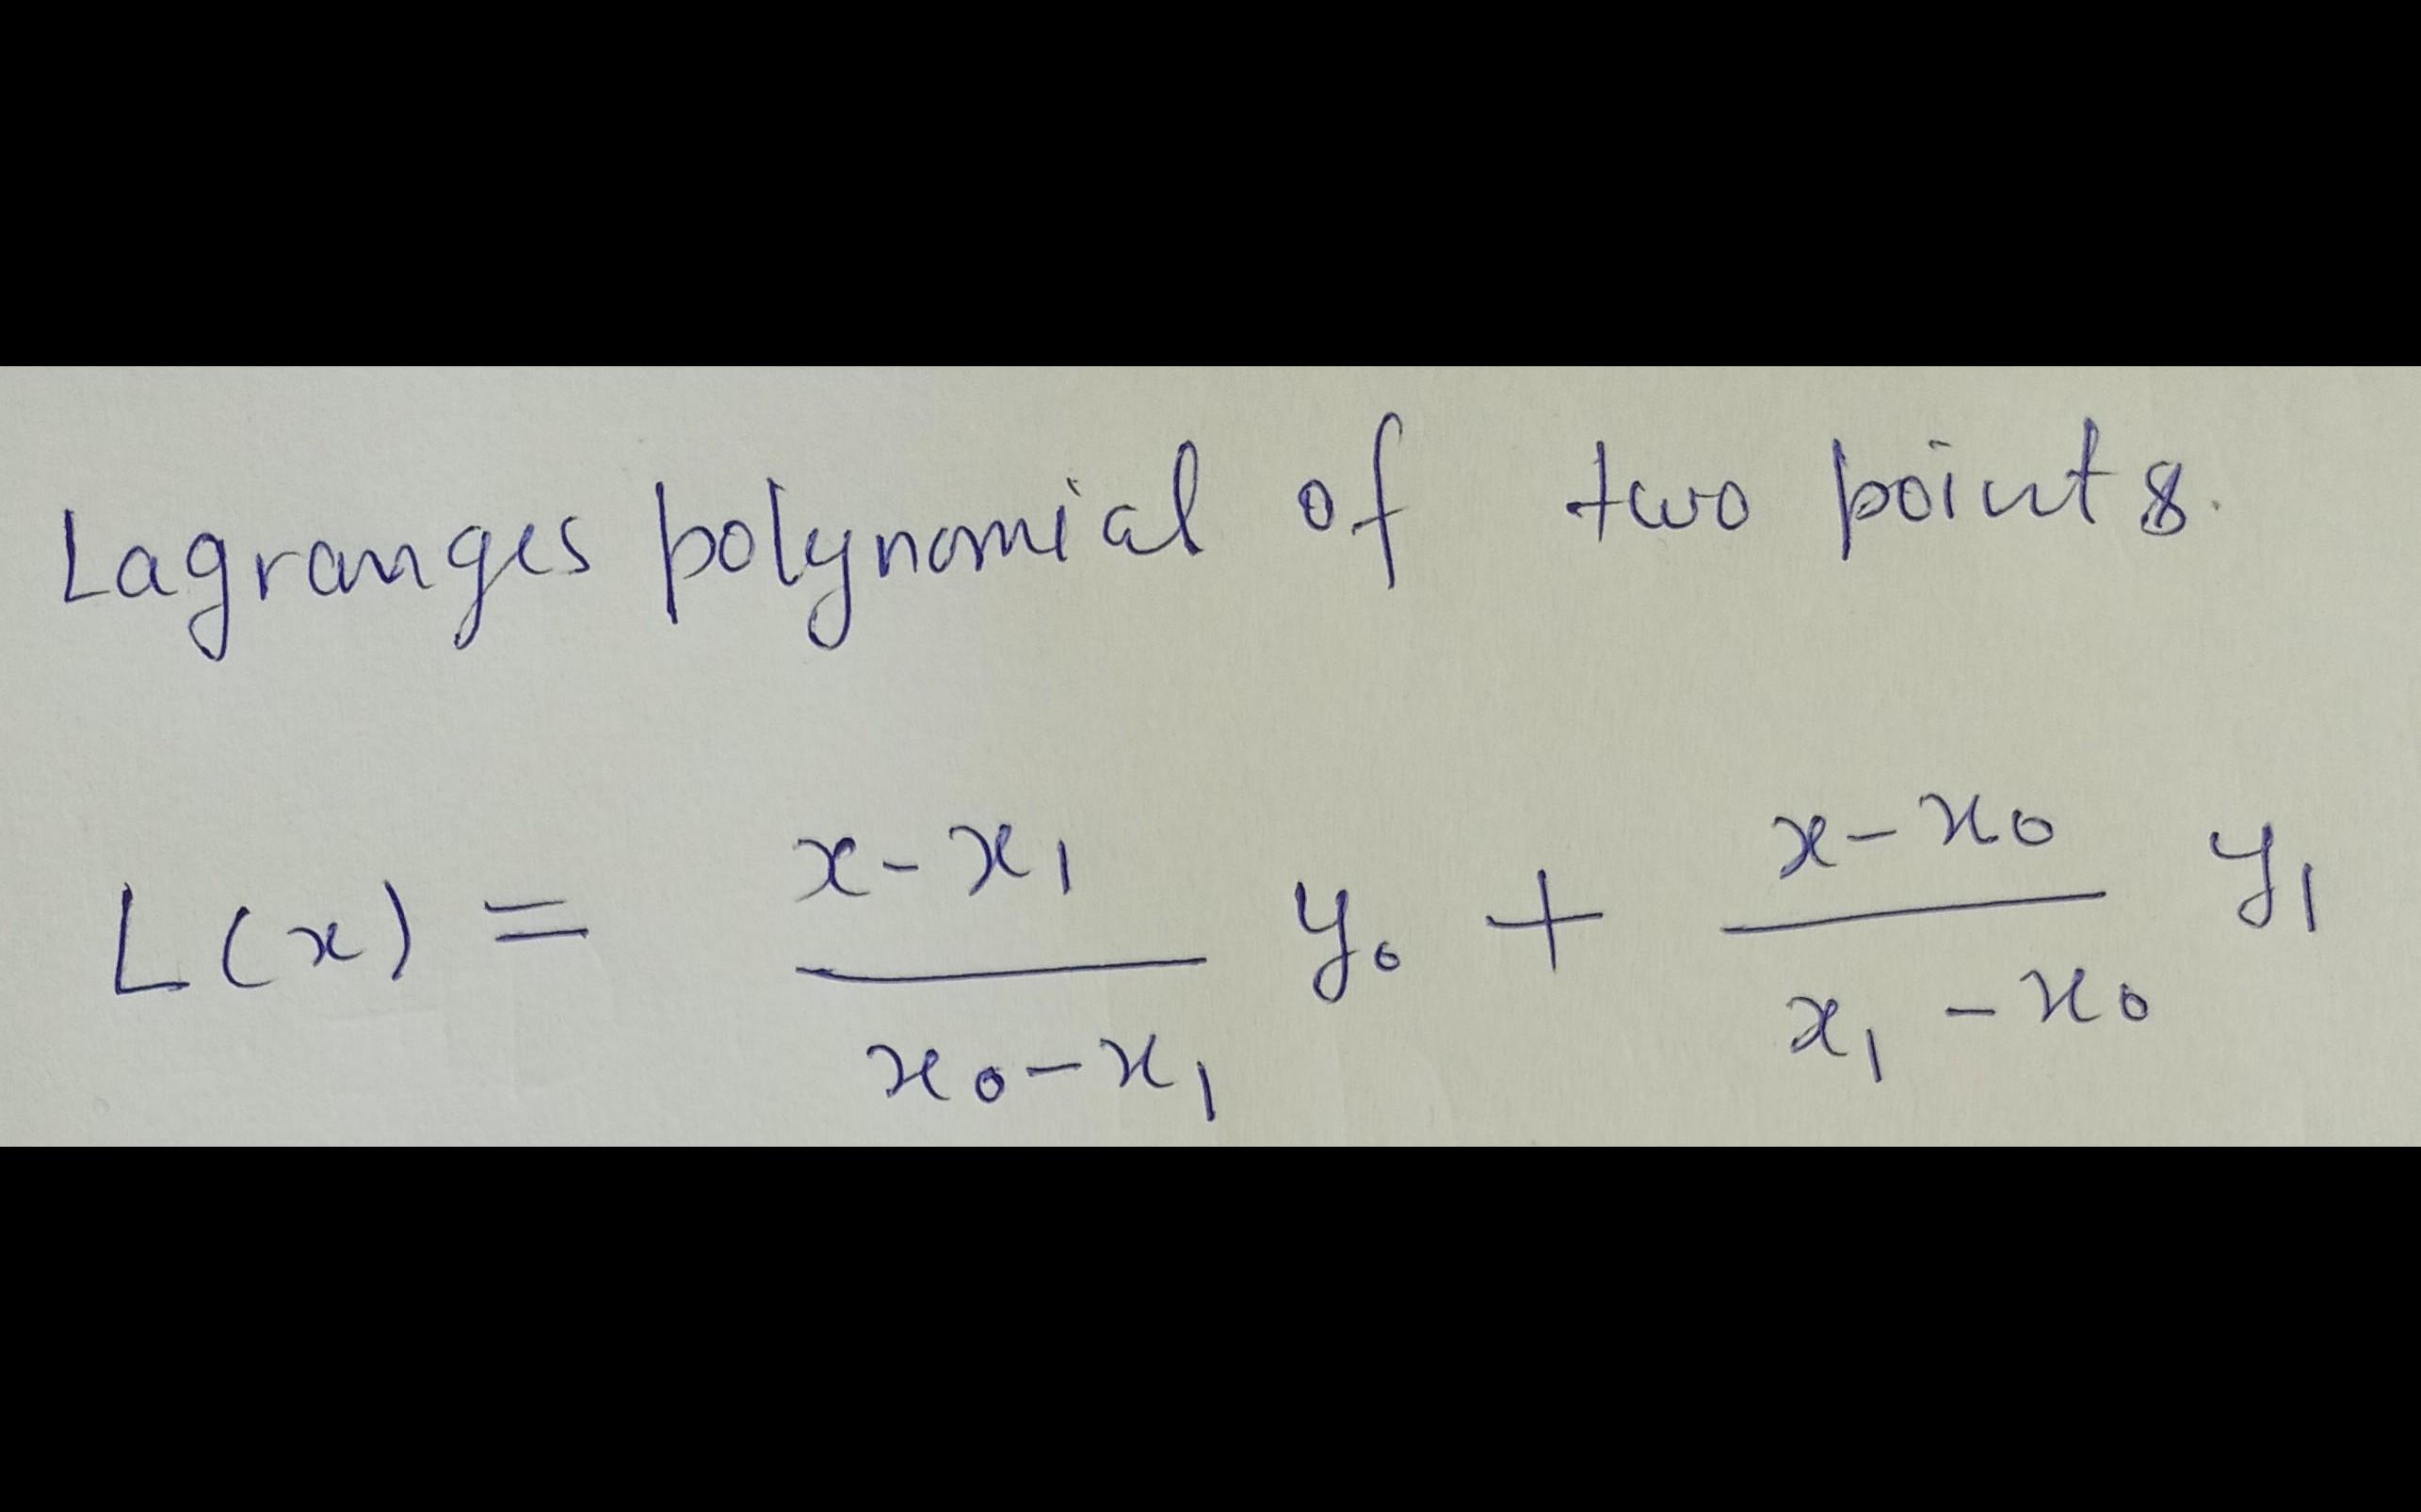 Lagranges polynomial of two points.
L(x) = \frac{x-x_1}{x_0-x_1} y_0 + \frac{x-x_0}{x_1-x_0} y_1